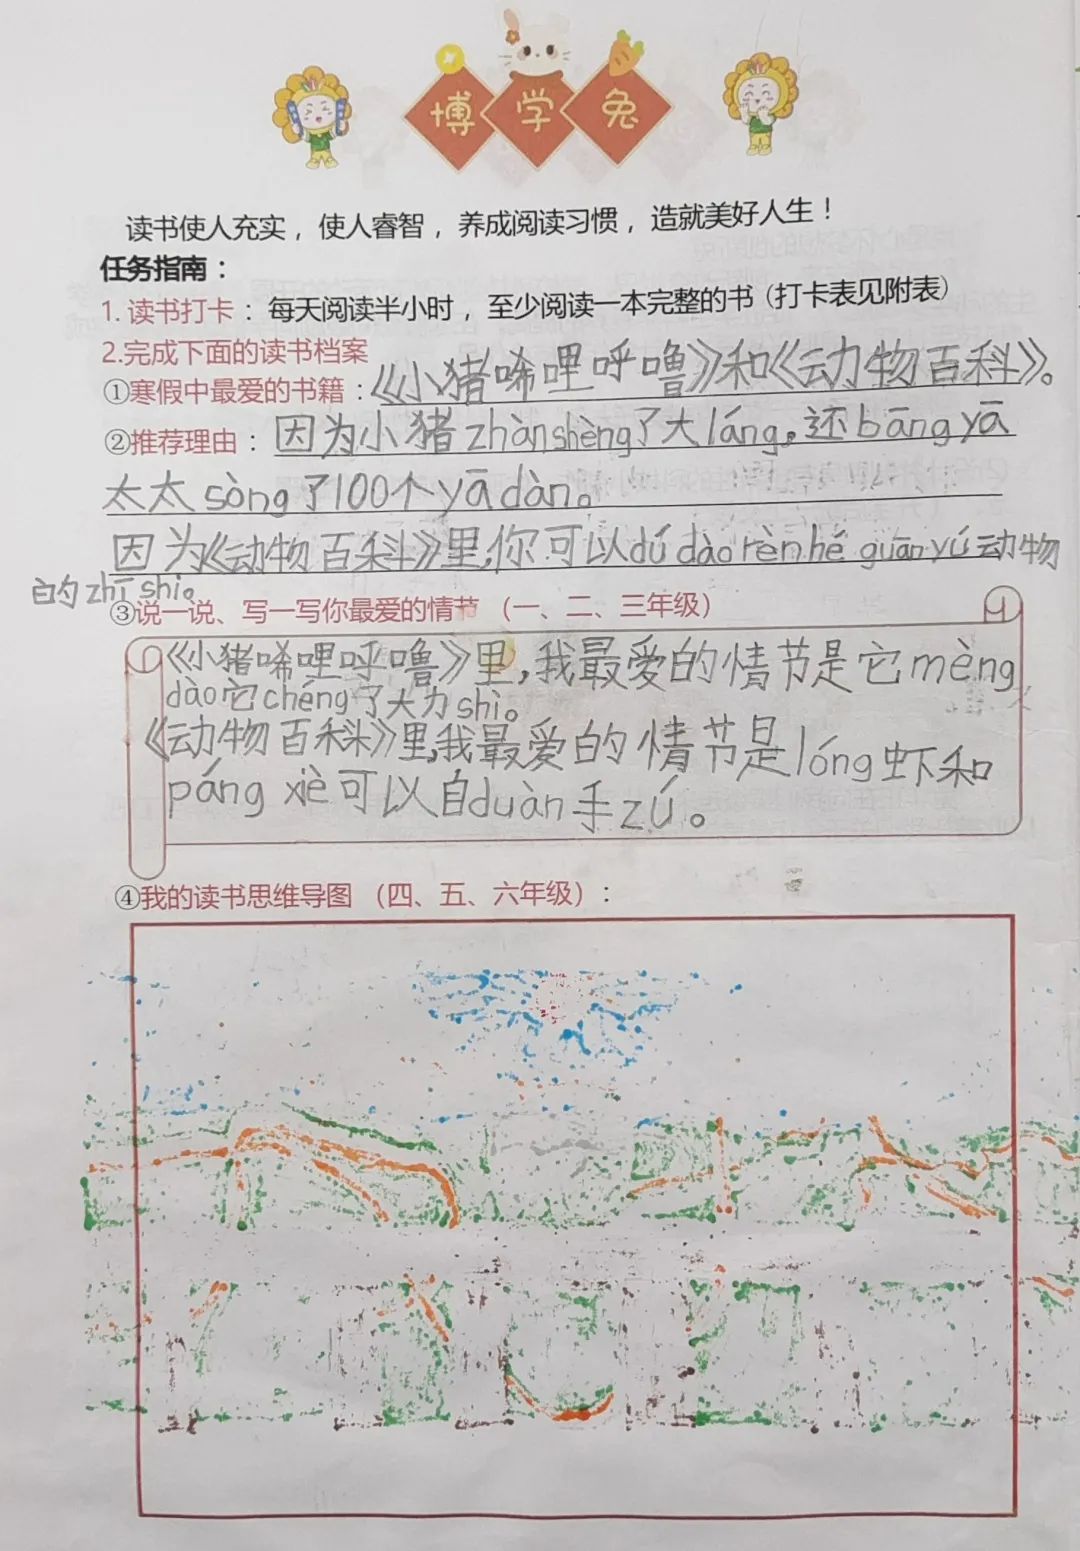 博学兔
读书使人充实，使人睿智，养成阅读习惯，造就美好人生！
任务指南：
1. 读书打卡：每天阅读半小时，至少阅读一本完整的书（打卡表见附表）
2.完成下面的读书档案
①寒假中最爱的书籍：《小猪唏哩呼噜》和《动物百科》。
②推荐理由：因为小猪zhànshèng了大láng。还bāngyā
太太sòng了100个yādàn。
因为《动物百科》里，你可以dúdàorènhéguānyú动物
的zhīshi。
③说一说、写一写你最爱的情节（一、二、三年级）
《小猪唏哩呼噜》里，我最爱的情节是它mèng
dào它chéng了大力shì。
《动物百科》里，我最爱的情节是lóng虾和
pángxiè可以自duàn手zú。
④我的读书思维导图（四、五、六年级）：